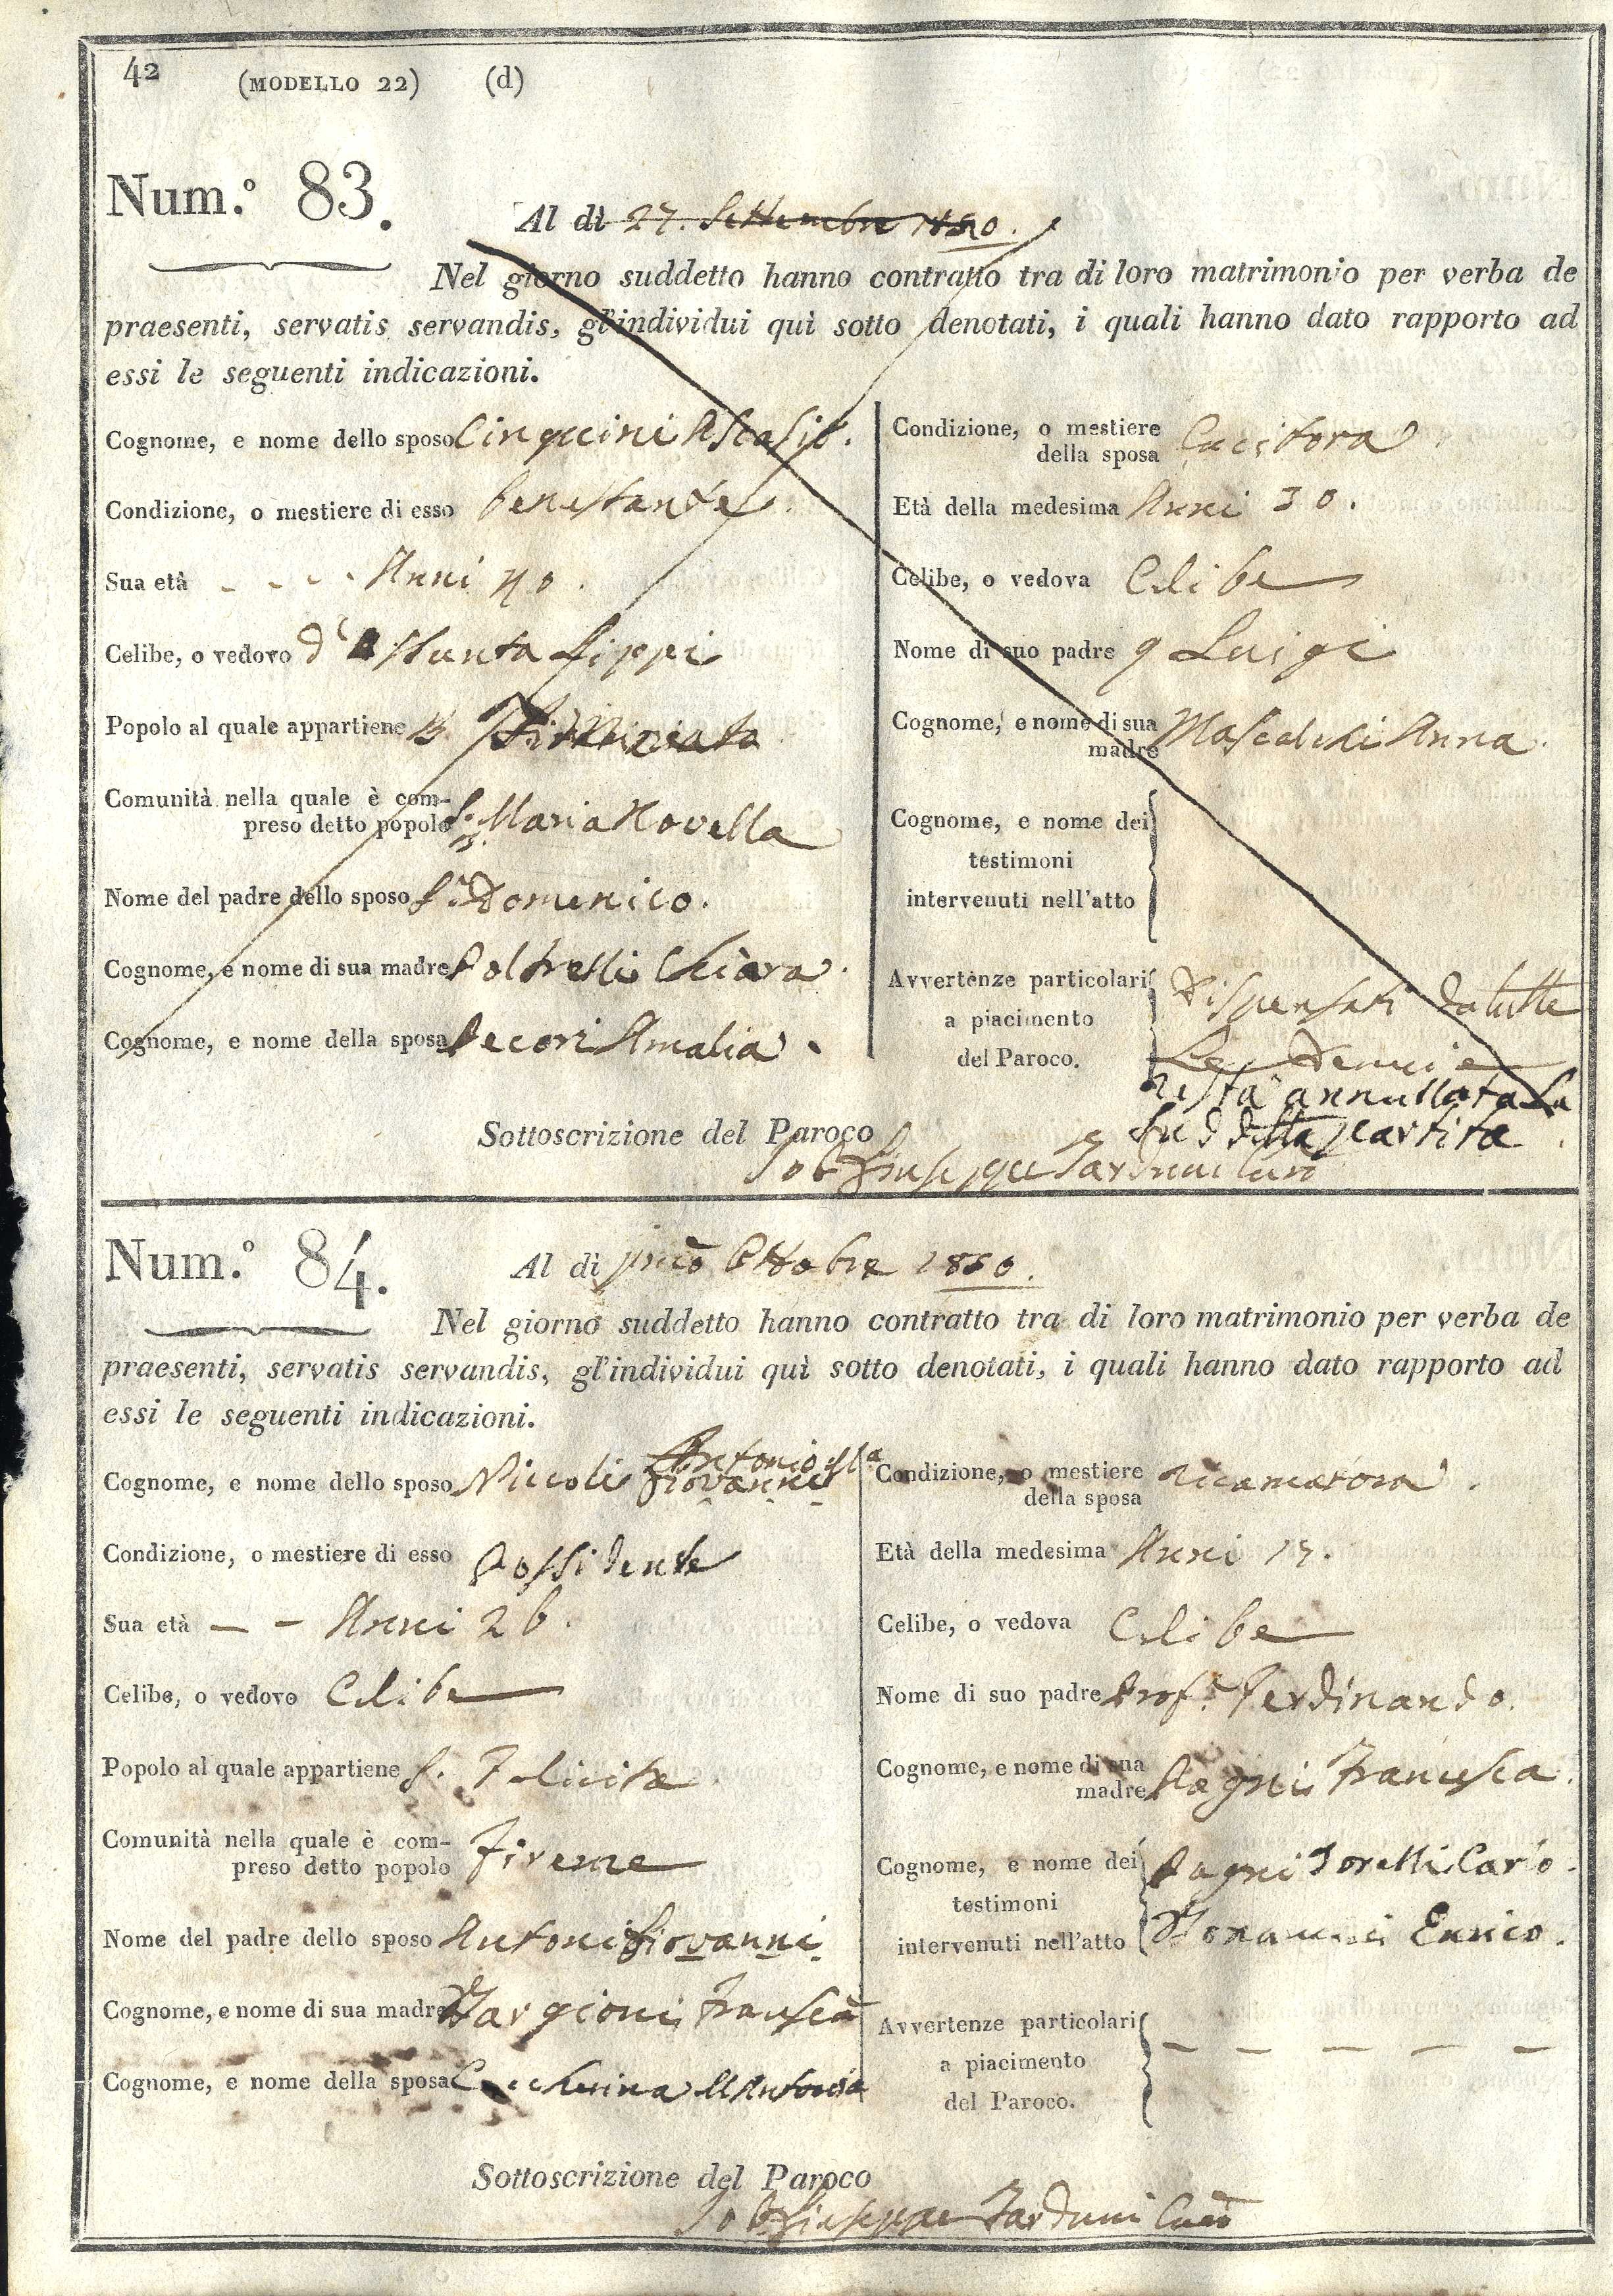 42 (MODELLO 22) (d)
Num.º 83.
Al dì 27. Settembre 1850.
Nel giorno suddetto hanno contratto tra di loro matrimonio per verba de
praesenti, servatis servandis, gl'individui quì sotto denotati, i quali hanno dato rapporto ad
essi le seguenti indicazioni.
Cognome, e nome dello sposo Cinquini
Condizione, o mestiere di esso benestante
Sua età Anni 40.
Celibe, o vedovo d'Assunta Lippi
Popolo al quale appartiene
Comunità nella quale è com-
preso detto popolo S. Maria Novella
Nome del padre dello sposo Domenico.
Cognome, e nome di sua madre Poltretti Chiara.
Cognome, e nome della sposa Pecori Amalia.
Condizione, o mestiere
della sposa Cucitora
Età della medesima Anni 30.
Celibe, o vedova Celibe
Nome di suo padre q Luigi
Cognome, e nome di sua
madre Anna.
Cognome, e nome dei
testimoni
intervenuti nell'atto
Avvertenze particolari
a piacimento
del Paroco.
Dispensati da tutte
Le Denuncie
resta annullata La
suddetta partita.
Sottoscrizione del Paroco
Giuseppe Tarduni Curo
Num.º 84.
Al dì primo Ottobre 1850.
Nel giorno suddetto hanno contratto tra di loro matrimonio per verba de
praesenti, servatis servandis, gl'individui quì sotto denotati, i quali hanno dato rapporto ad
essi le seguenti indicazioni.
Antonio
Cognome, e nome dello sposo Niccoli Giovanni
Condizione, o mestiere di esso Possidente
Sua età — — Anni 26.
Celibe, o vedovo Celibe
Popolo al quale appartiene S. Felicita
Comunità nella quale è com-
preso detto popolo Firenze
Nome del padre dello sposo Giovanni
Cognome, e nome di sua madre Targioni
Cognome, e nome della sposa
Condizione, o mestiere
della sposa ricamatora.
Età della medesima Anni 17.
Celibe, o vedova Celibe
Nome di suo padre Ferdinando.
Cognome, e nome di sua
madre Pagni Francesca.
Cognome, e nome dei
testimoni
intervenuti nell'atto
Pagni Torelli Carlo.
Enrico.
Avvertenze particolari
a piacimento
del Paroco.
— — — — —
Sottoscrizione del Paroco
Giuseppe Tarduni Curo